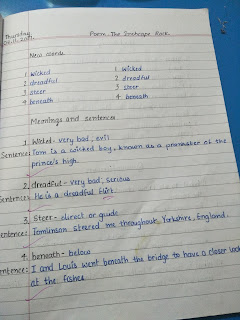 Thursday
Poem-The Inchcape Rock.
New words
1. wicked 1. wicked
2 dreadful 2. dreadful
3 steer 3. steer
4 beneath 4 beneath
Meanings and sentences
1. Wicked- very bad, evil
Sentence: Tom is a wicked boy, known as a prankster of the
prince's high.
2. dreadful- very bad, serious
Sentences: He is a dreadful flirt.
3. Steer- direct or guide
Sentence: Tomlinson steered me throughout Yorkshire, England.
4. beneath- below
Sentence: I and Louis went beneath the bridge to have a closer look
at the fishes